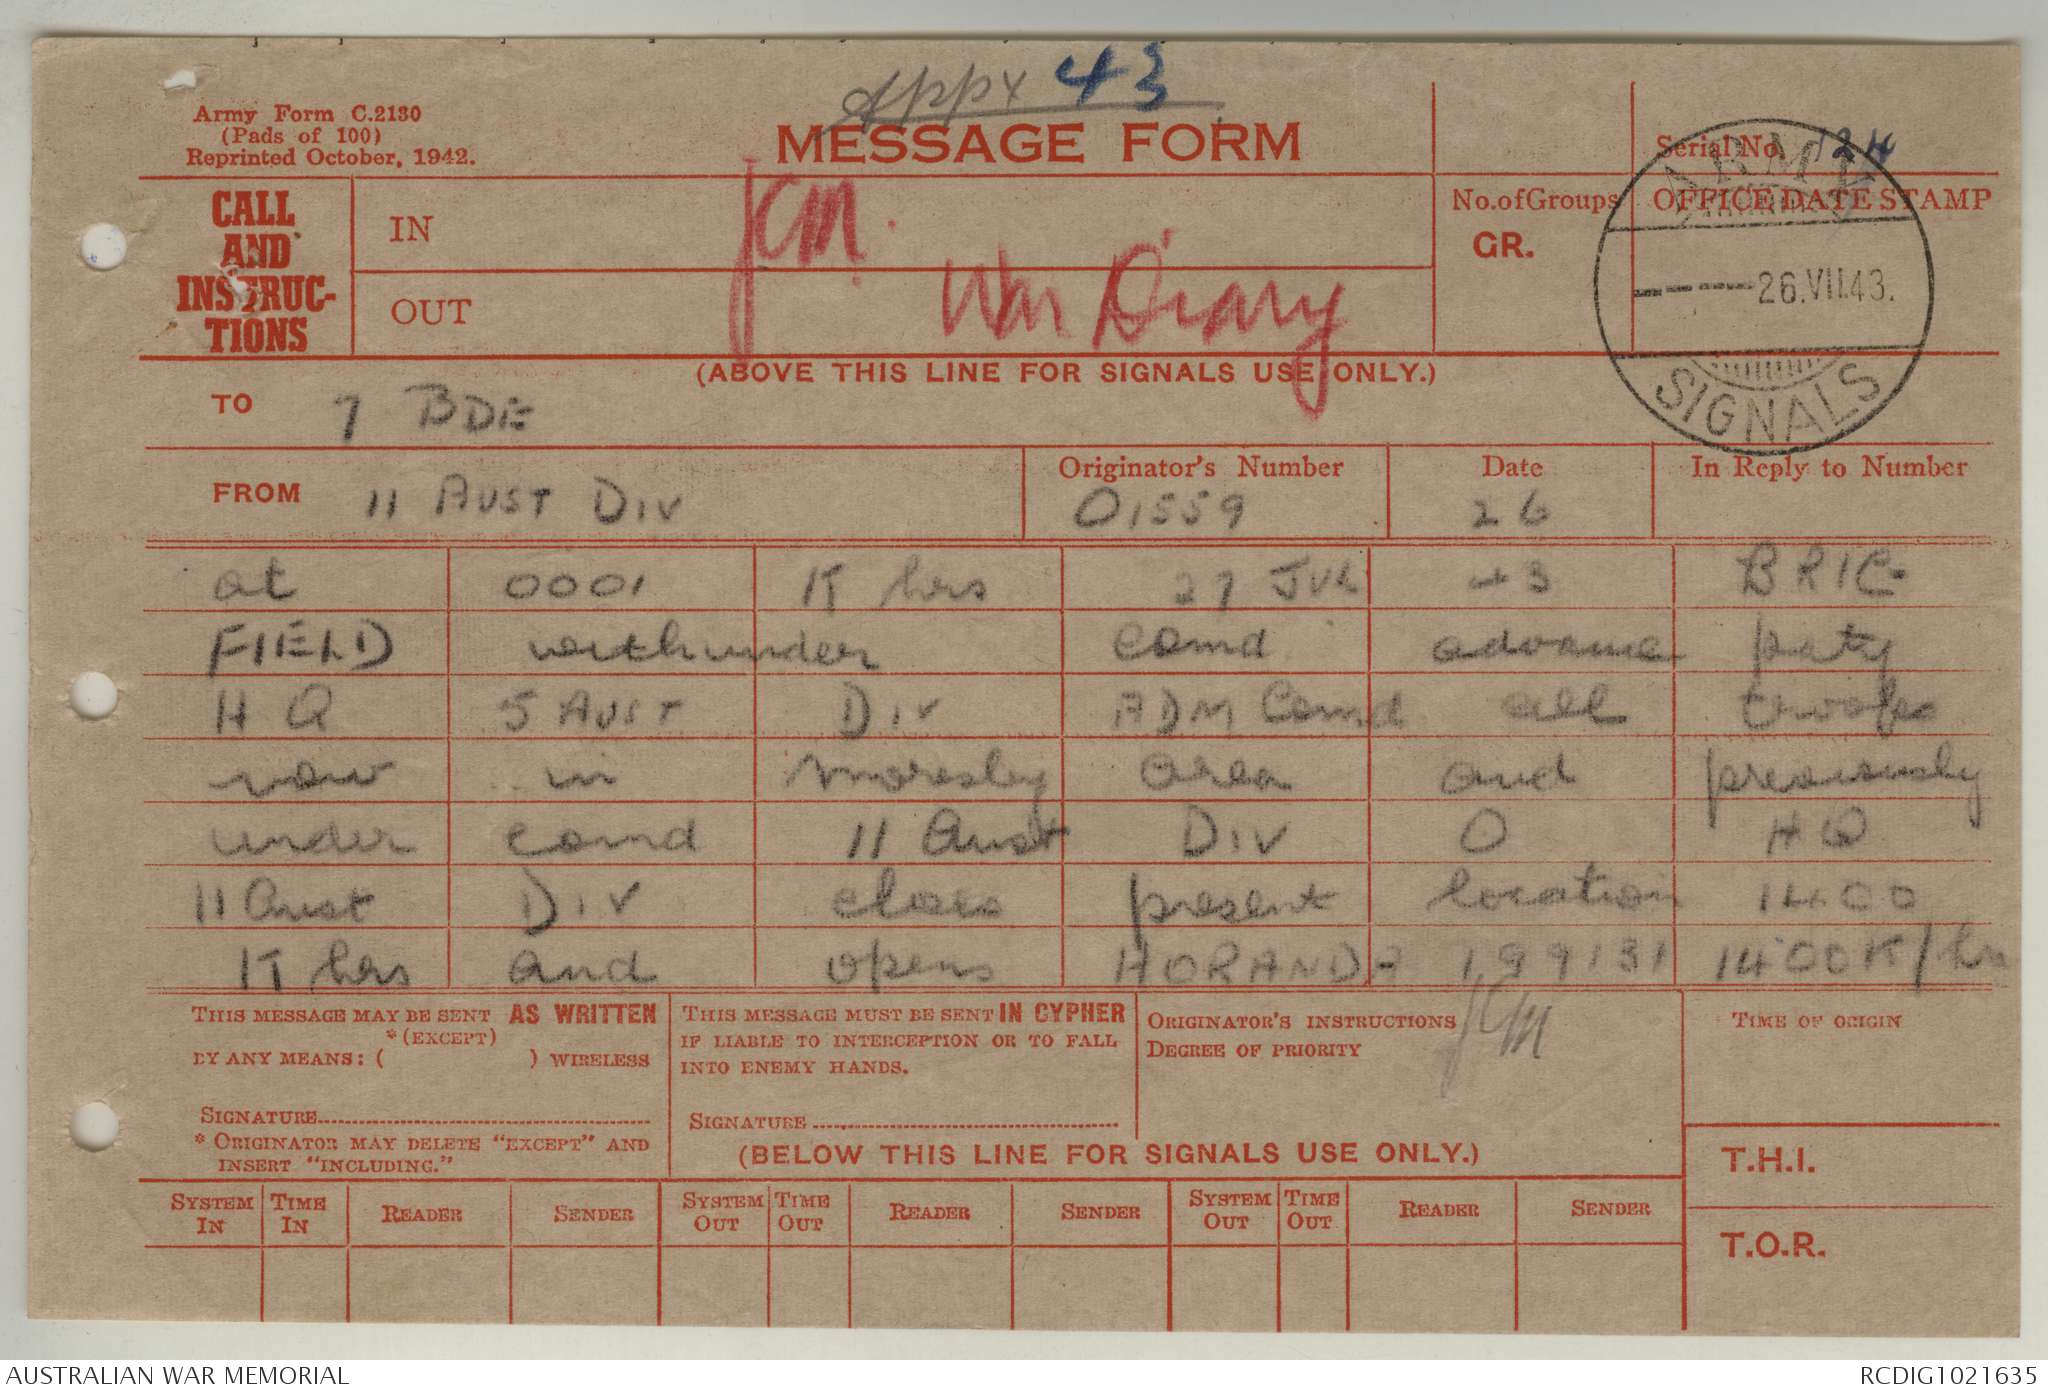 Appx 43
Army Form C.2130
(Pads of 100)
Reprinted October, 1942.
MESSAGE FORM
Serial No. 124
CALL
AND
INSTRUC-
TIONS
IN
OUT
JCM.
War Diary
No.ofGroups
GR.
OFFICE DATE STAMP
ARMY
26.VII.43.
SIGNALS
(ABOVE THIS LINE FOR SIGNALS USE ONLY.)
TO 7 BDE
FROM 11 AUST DIV
Originator's Number
O1559
Date
26
In Reply to Number
at 0001 K hrs 27 JUL 43 BRIC-
FIELD with under comd advance paty
HQ 5 AUST DIV ADM Comd all
now in Moresby area and previously
under comd 11 Aust DIV O HQ
11 Aust DIV closes present location 1400
K hrs and opens HORANDA 199131 1400K/hrs
THIS MESSAGE MAY BE SENT AS WRITTEN
*(EXCEPT)
BY ANY MEANS: ( ) WIRELESS
SIGNATURE
* ORIGINATOR MAY DELETE "EXCEPT" AND
INSERT "INCLUDING."
THIS MESSAGE MUST BE SENT IN CYPHER
IF LIABLE TO INTERCEPTION OR TO FALL
INTO ENEMY HANDS.
SIGNATURE
ORIGINATOR'S INSTRUCTIONS
DEGREE OF PRIORITY
JCM
TIME OF ORIGIN
(BELOW THIS LINE FOR SIGNALS USE ONLY.)
T.H.I.
T.O.R.
SYSTEM IN TIME IN READER SENDER SYSTEM OUT TIME OUT READER SENDER SYSTEM OUT TIME OUT READER SENDER
AUSTRALIAN WAR MEMORIAL
RCDIG1021635